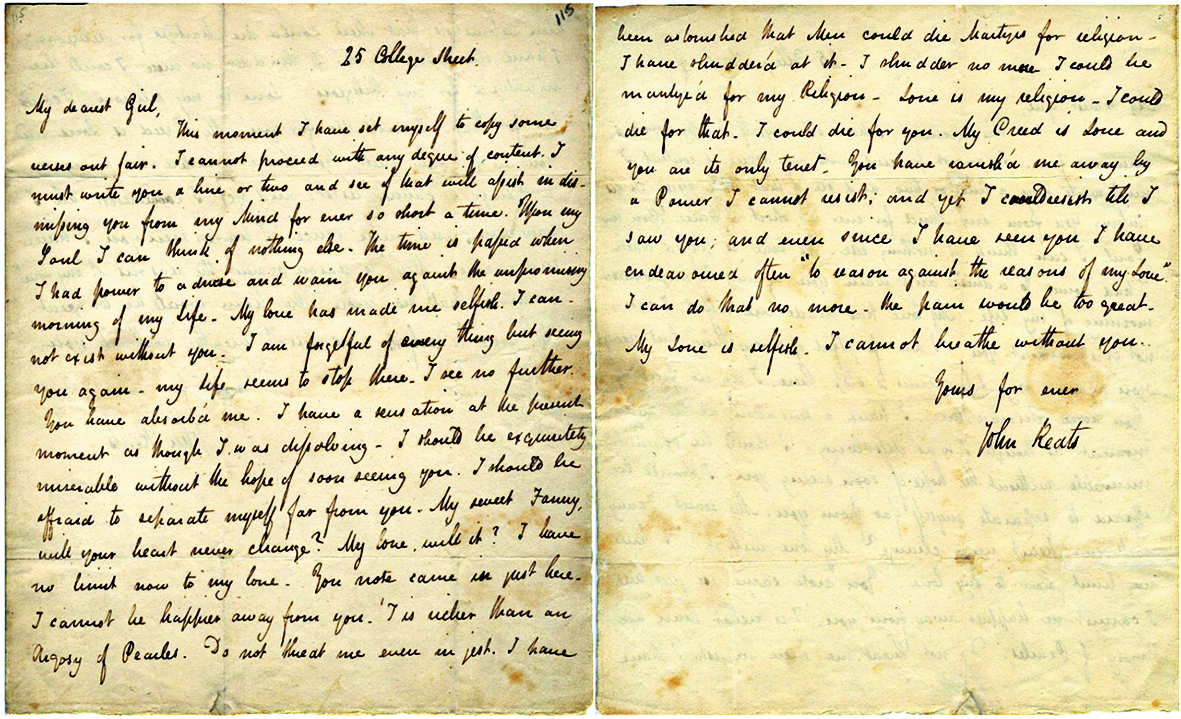 115
115
25 College Street.
My dearest Girl,
This moment I have set myself to copy some
verses out fair. I cannot proceed with any degree of content. I
must write you a line or two and see if that will assist in dis-
missing you from my Mind for ever so short a time. Upon my
Soul I can think of nothing else - The time is passed when
I had power to advise and warn you against the unpromising
morning of my Life - My love has made me selfish. I can-
not exist without you - I am forgetful of every thing but seeing
you again - my Life seems to stop there - I see no further.
You have absorb'd me. I have a sensation at the present
moment as though I was dissolving - I should be exquisitely
miserable without the hope of soon seeing you. I should be
affraid to separate myself far from you. My sweet Fanny,
will your heart never change? My love, will it? I have
no limit now to my love - You note came in just here -
I cannot be happier away from you. 'T is richer than an
Argosy of Pearles. Do not threat me even in jest. I have
been astonished that Men could die Martyrs for religion -
I have shudder'd at it - I shudder no more I could be
martyr'd for my Religion - Love is my religion - I could
die for that. I could die for you. My Creed is Love and
you are its only tenet - You have ravish'd me away by
a Power I cannot resist; and yet I could resist till I
saw you; and even since I have seen you I have
endeavoured often "to reason against the reasons of my Love."
I can do that no more - the pain would be too great -
My Love is selfish. I cannot breathe without you.
Yours for ever
John Keats